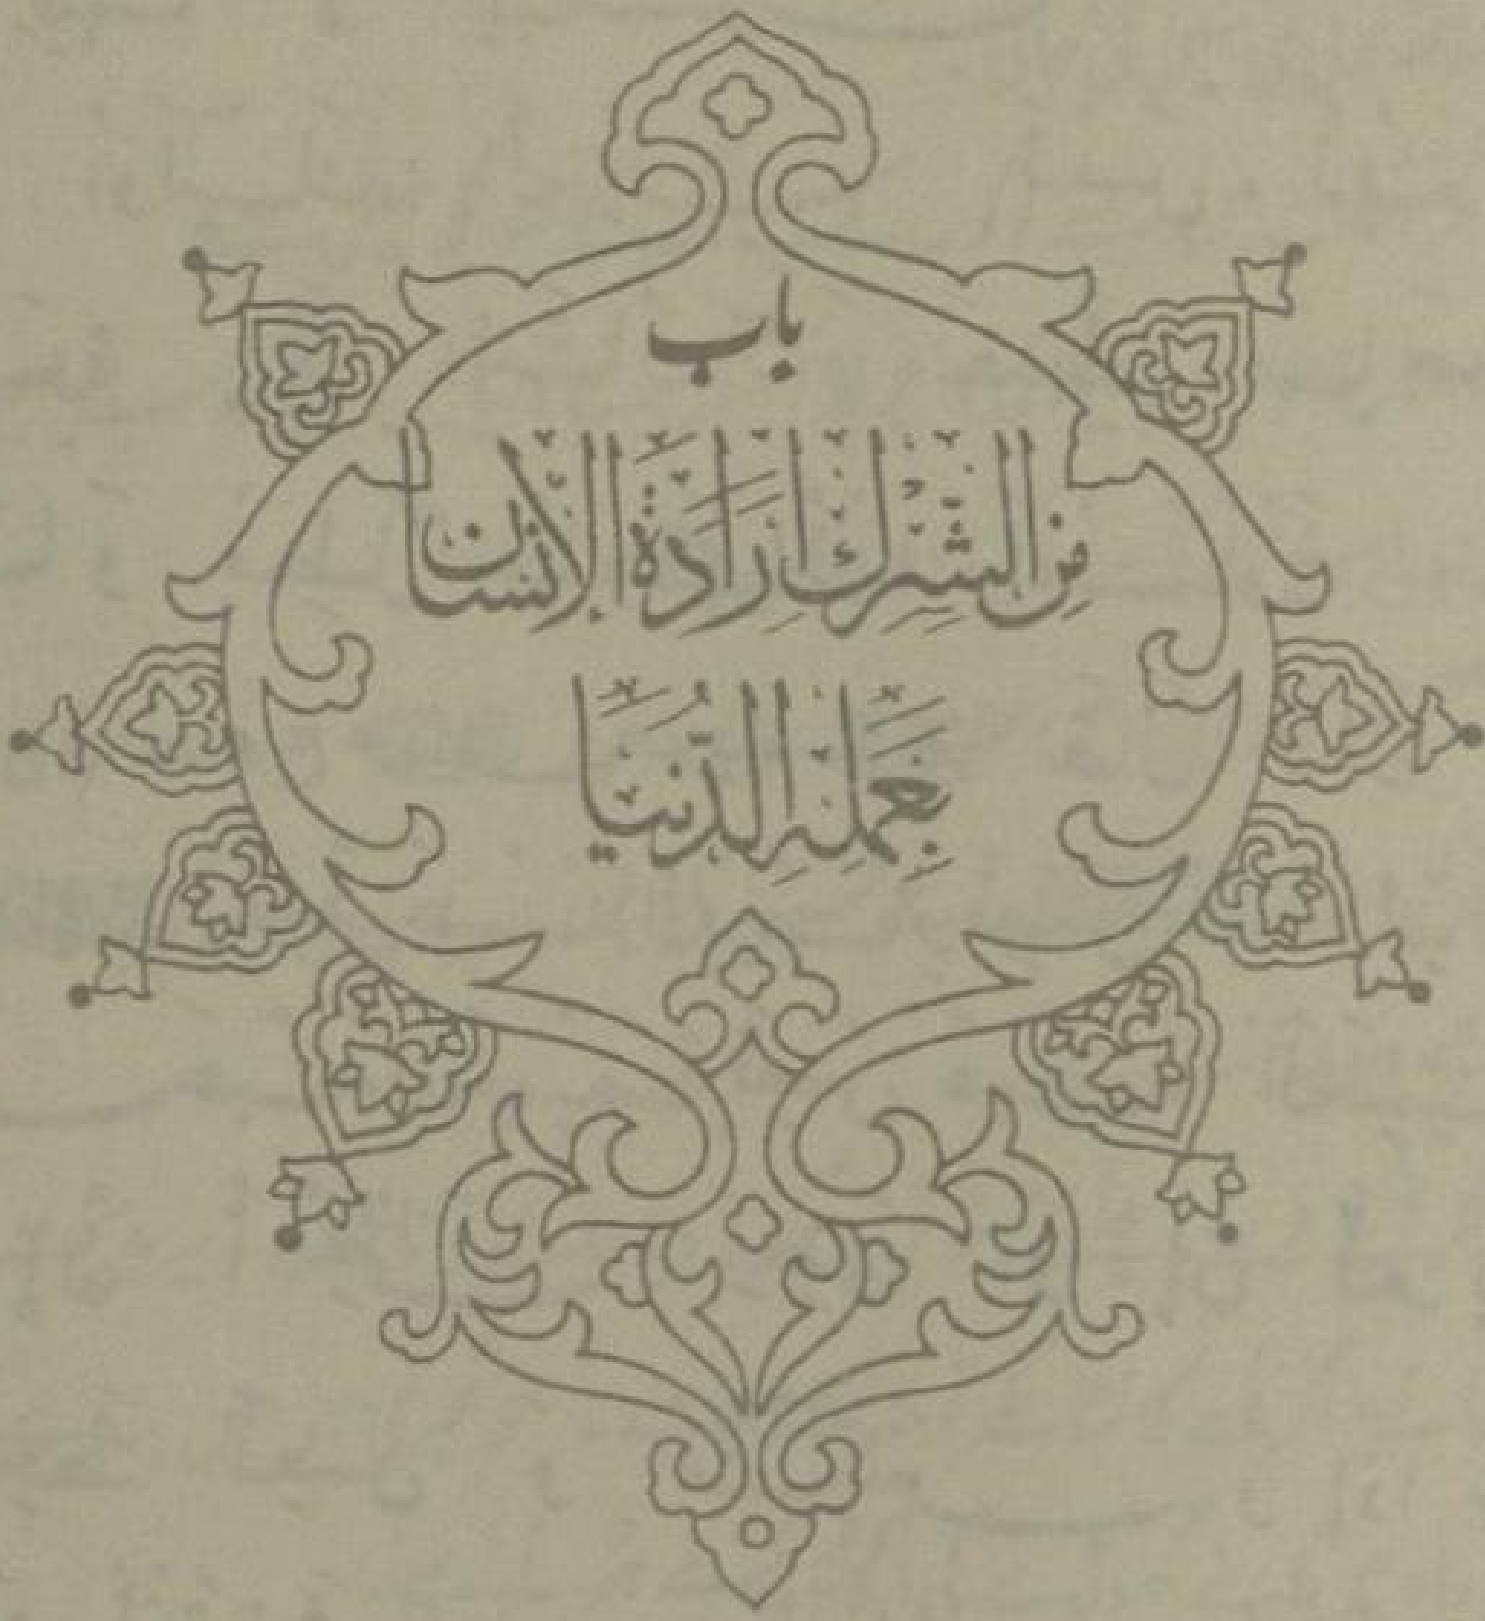 باب
من الشرك إرادة الإنسان
بعمله الدنيا